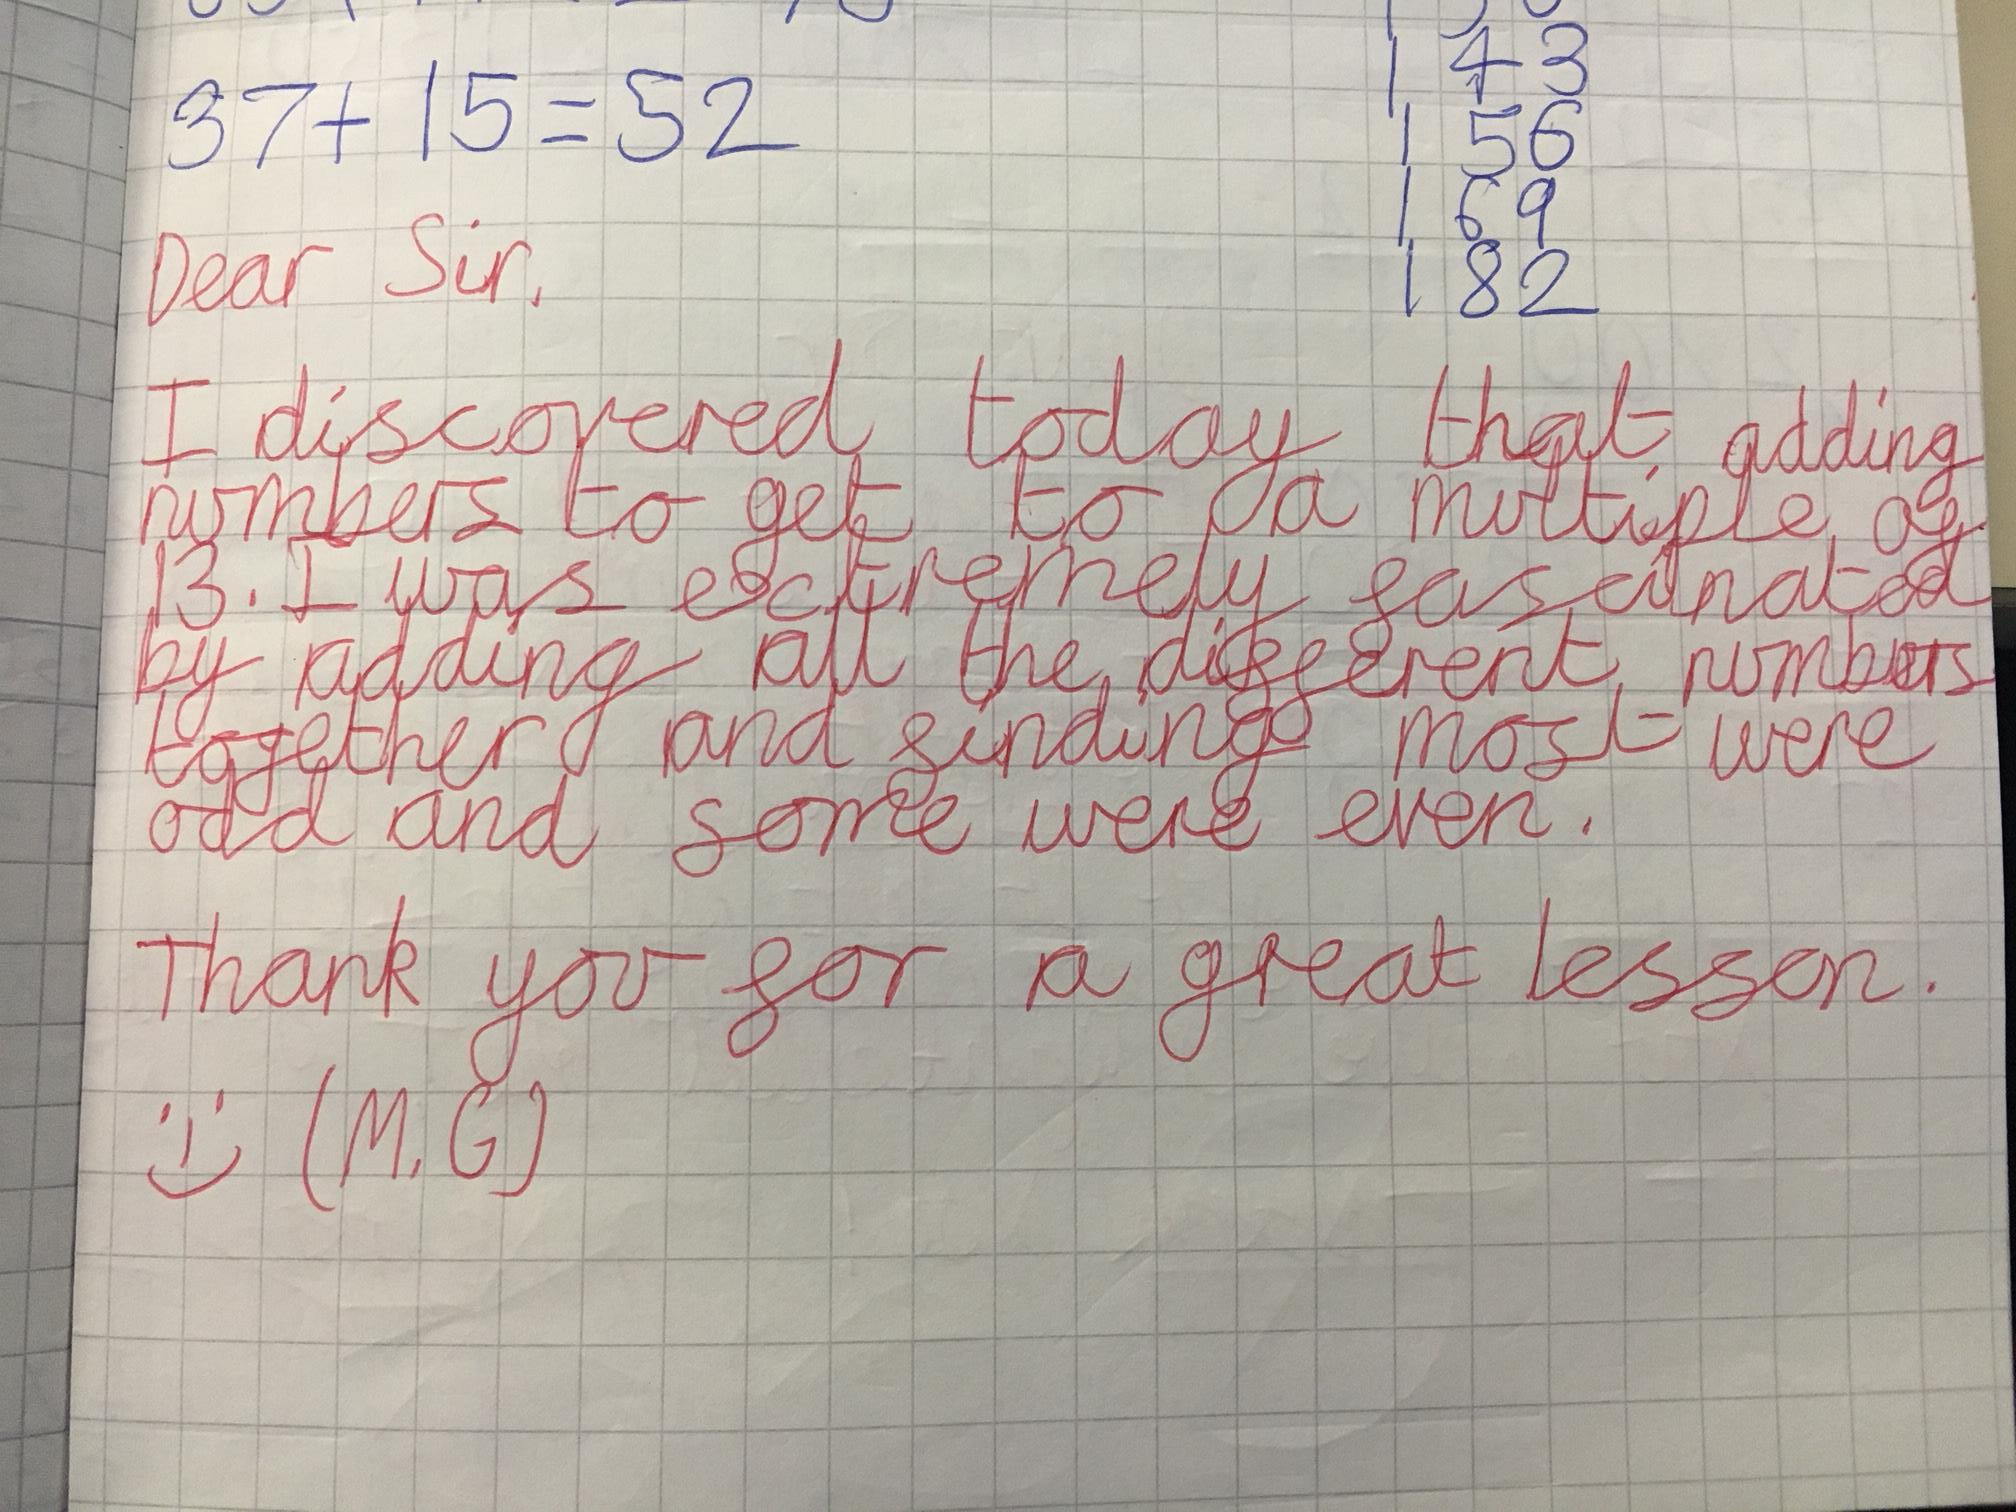 37+15=52
143
156
169
182
Dear Sir,
I discovered today that adding
numbers to get to a multiple of
13. I was extremely fascinated
by adding all the different numbers
together and finding most were
odd and some were even.
Thank you for a great lesson.
(M.G)